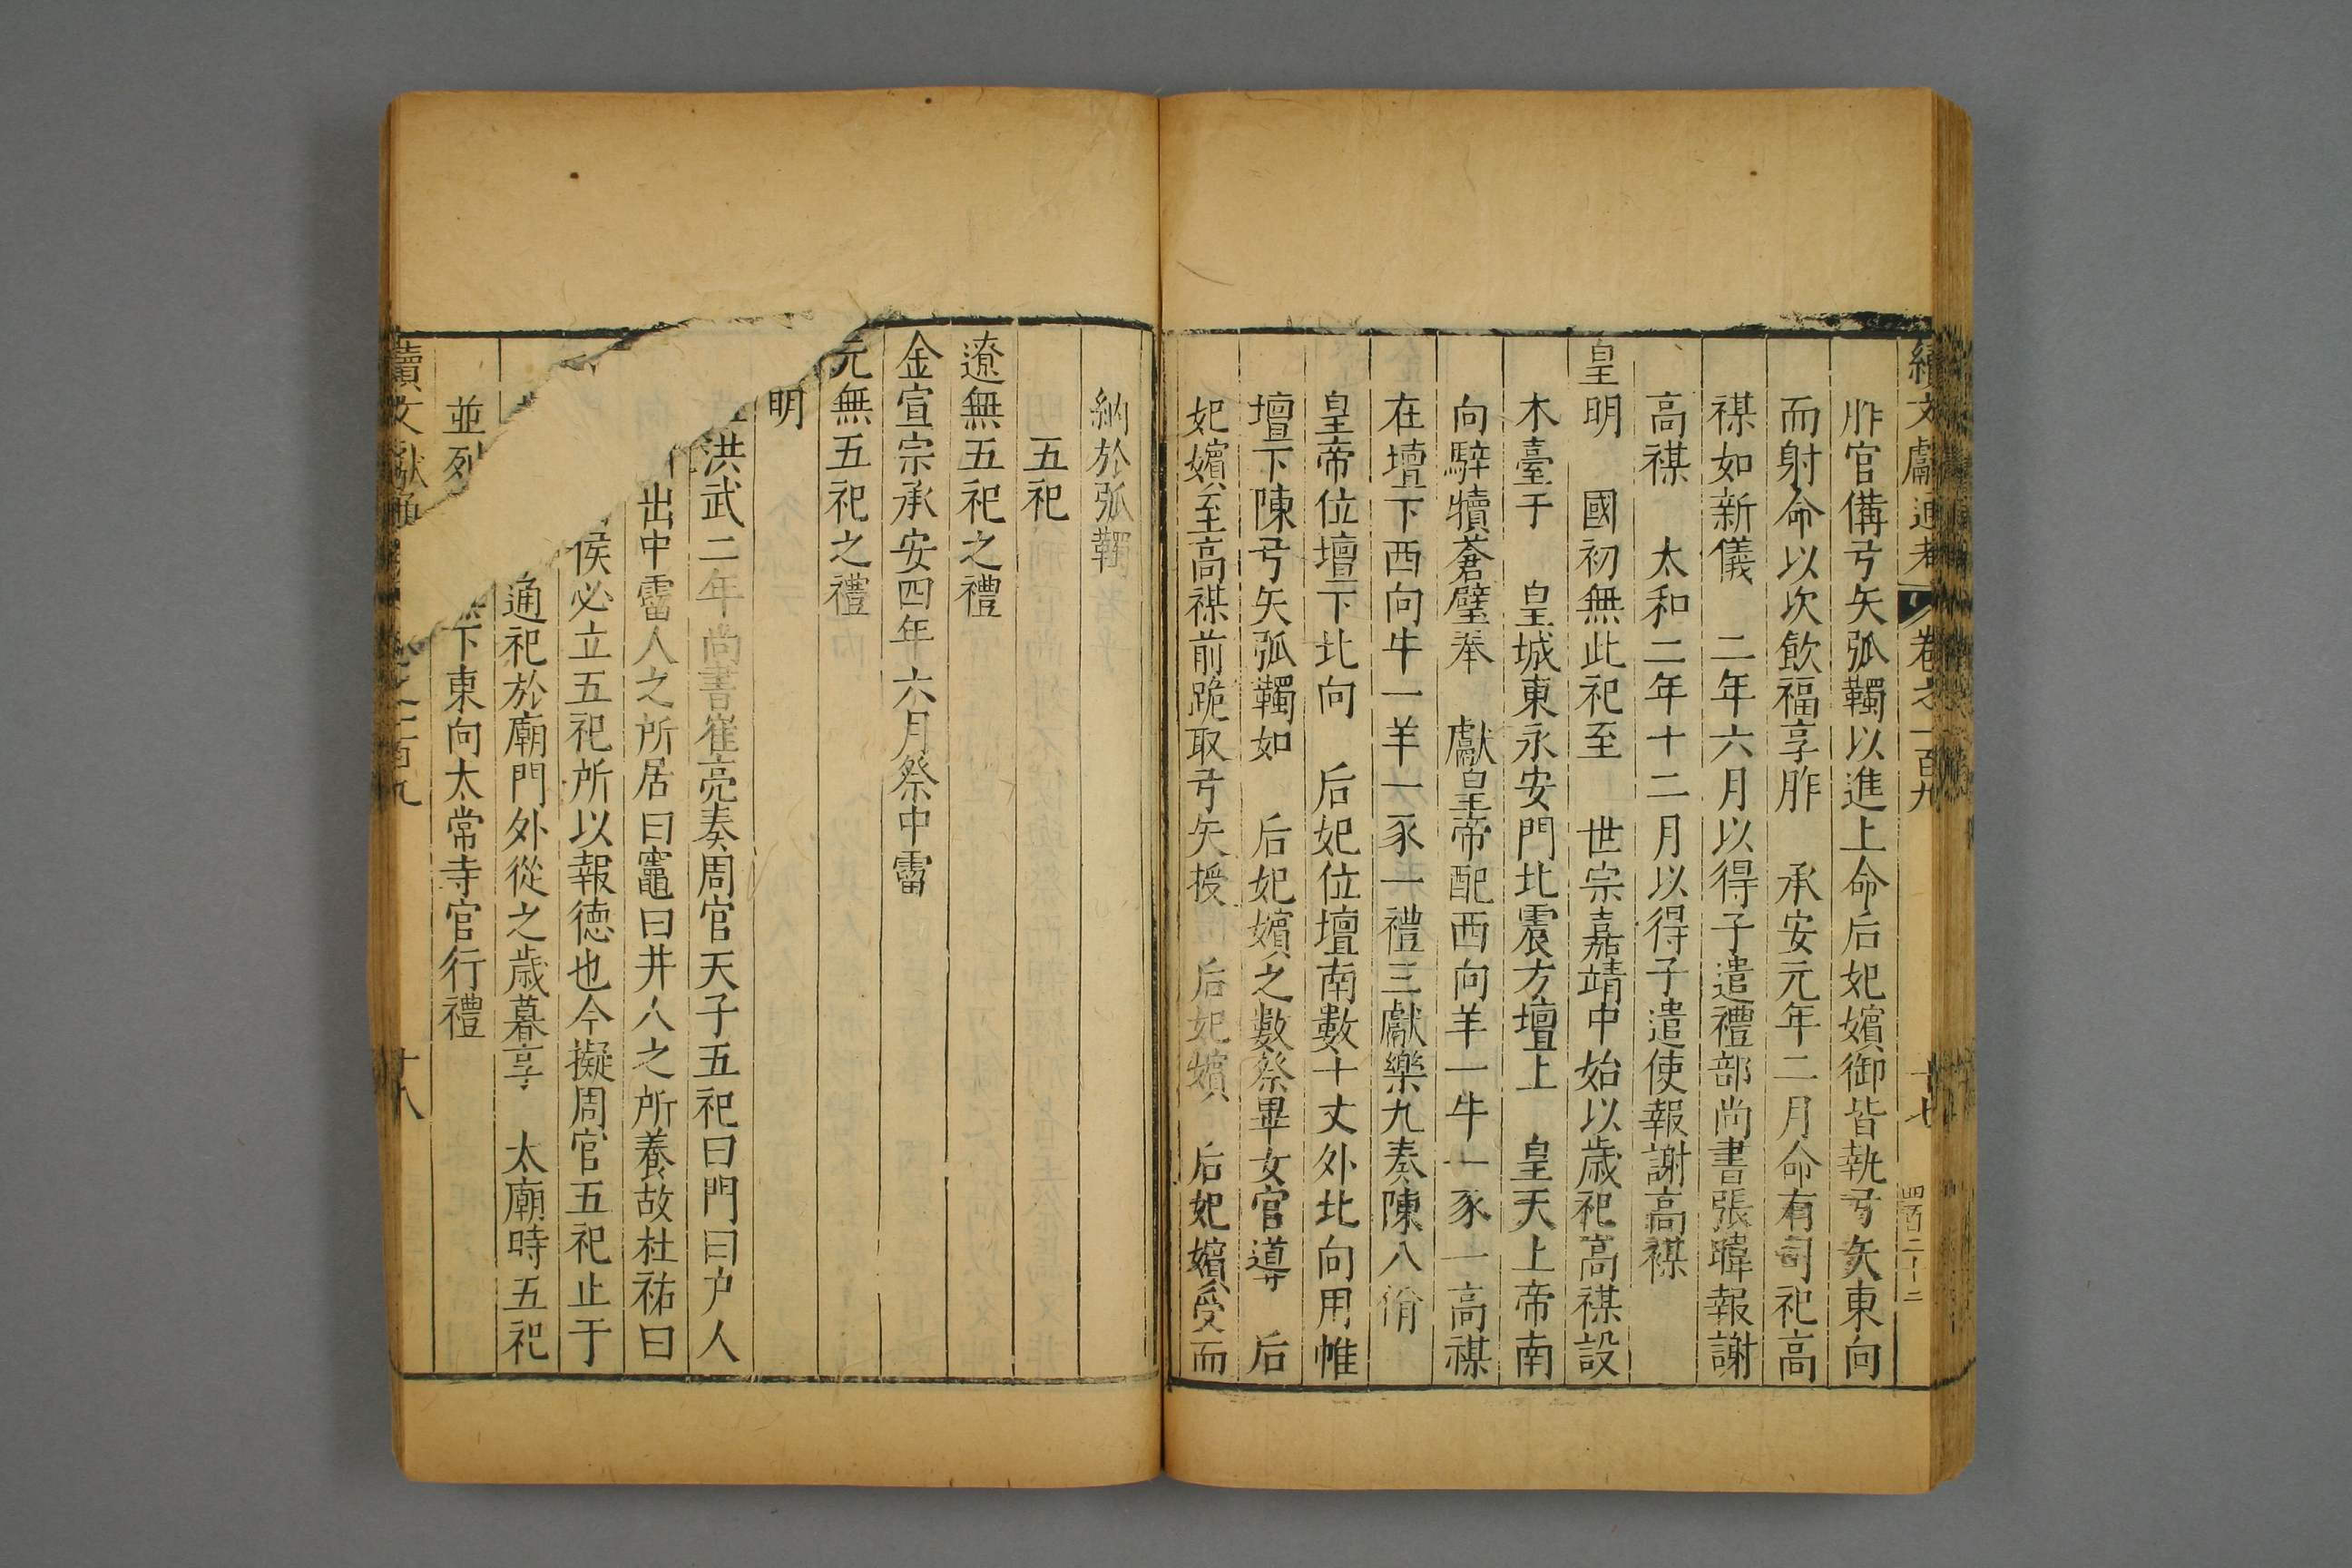 續文獻通考 卷之一百九 十七
胙官備弓矢弧韣以進上命后妃嬪御皆執弓矢東向
而射命以次飲福享胙 承安元年二月命有司祀高
禖如新儀 二年六月以得子遣禮部尚書張暐報謝
高禖 太和二年十二月以得子遣使報謝高禖
皇明 國初無此祀至 世宗嘉靖中始以歲祀高禖設
木臺于 皇城東永安門北震方壇上 皇天上帝南
向騂犢蒼璧奉 獻皇帝配西向羊一牛一豕一高禖
在壇下西向牛一羊一豕一禮三獻樂九奏陳八佾
皇帝位壇下北向 后妃位壇南數十丈外北向用帷
壇下陳弓矢弧韣如 后妃嬪之數祭畢女官導 后
妃嬪至高禖前跪取弓矢授 后妃嬪 后妃嬪受而
納於弧韣
五祀
遼無五祀之禮
金宣宗承安四年六月祭中霤
元無五祀之禮
明
洪武二年尚書崔亮奏周官天子五祀曰門曰户人
出中霤人之所居曰竈曰井人之所養故杜祐曰
侯必立五祀所以報德也今擬周官五祀止于
通祀於廟門外從之歲暮享 太廟時五祀
並列 下東向太常寺官行禮
續文獻通 之一百九 十八